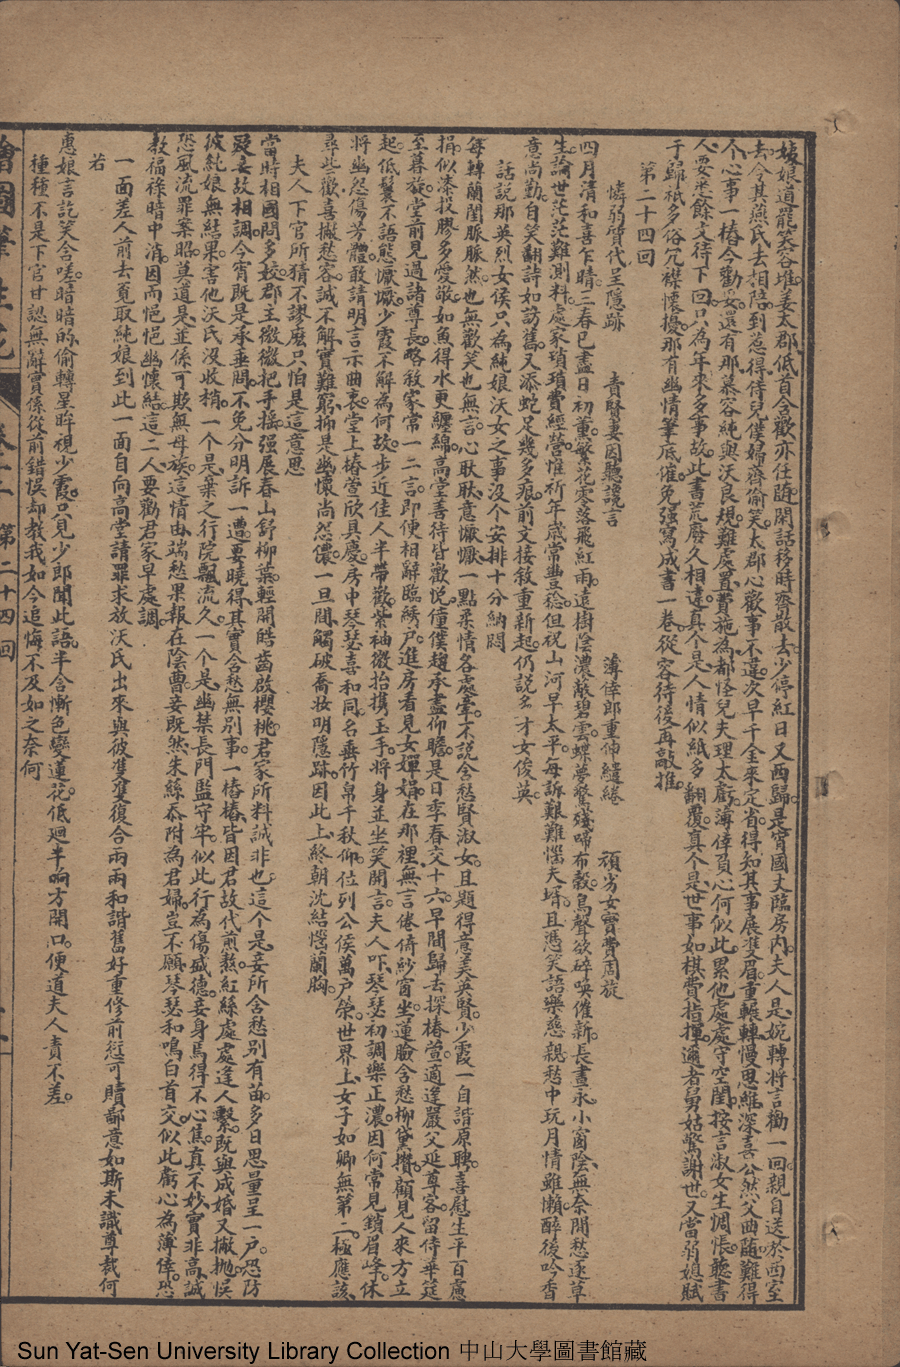 娘道罷笑吞堆姜太郡低首含歡亦任隨閑話移時齊散去少停紅日又西歸是宵國丈臨房內夫人是婉轉將言勸一回親自送於西室
去今其燕氏去相陪到忘得侍兒僕婦齊偷笑太郡心歡事不違次早千金來定省得知其事展雙眉重輾轉慢思維深喜公然父曲隨難得
个心事一樁今勸妥還有那慕容純與沃良規難處置費施為都怪兒夫理太虧薄倖負心何似此累他處處守空閨按言淑女生惆悵聽書
人要悉餘文待下回只為年來多事故此書荒廢久相違真个是人情似紙多翻覆真个是世事如棋費指揮邇者舅姑驚謝世又當弱媳賦
于歸祇多俗冗襟懷擾那有幽情筆底催免强寫成書一卷從容待後再敲推
第二十四回
憐弱質代呈隱跡 責賢妻因聽讒言 薄倖郎重伸繾綣 頑劣女實費周旋
四月清和喜乍晴三春已盡日初薰繁花零落飛紅雨遠樹陰濃蔽碧雲蝶夢驚殘啼布穀鳥聲欲碎喚催新長晝永小窗陰無奈閒愁逐草
生論世茫茫難測料處家瑣瑣費經營惟祈年歲常豐稔但祝山河早太平每訴艱難惱夫壻且憑笑語樂慈親愁中玩月情雖懶醉後吟香
意尚勤自笑翻詩如訪舊又添蛇足幾多痕前文接敘重新起仍說名才女俊英
話說那英烈女侯只為純娘沃女之事沒个安排十分納悶
每轉蘭閨脈脈然也無歡笑也無言心耿耿意懨懨一點柔情各處牽不說含愁賢淑女且題得意美英賢少霞一自諧原聘喜慰生平百慮
捐似漆投膠多愛敬如魚得水更纏綿高堂善待皆歡悅僮僕趨承盡仰瞻是日季春交十六早間歸去探椿萱適逢嚴父延尊客留侍華筵
至暮旋堂前見過諸尊長略敘家常一二言即便相辭臨綉戶進房看見女嬋娟在那裡無言倦倚紗窗坐蓮臉含愁柳黛攢顧見人來方立
起低鬟不語態懨懨少霞不解為何故步近佳人半帶歡紫袖微抬携玉手將身並坐笑開言夫人吓琴瑟初調樂正濃因何常見鎖眉峰休
將幽怨傷芳體敢請明言示曲衷堂上椿萱欣具慶房中琴瑟喜和同名垂竹帛千秋仰位列公侯萬戶榮世界上女子如卿無第二極應該
尋些歡喜撇愁容誠不解實難窮抑是幽懷尚怨儂一旦間觸破喬妝明隱跡因此上終朝沈結悶蘭胸
夫人下官所猜不謬麽只怕是這意思
當時相國問多姣郡主微微把手搖强展春山舒柳葉輕開皓齒啟櫻桃君家所料誠非也這个是妾所含愁別有苗多日思量呈一戶恐防
疑妾故相調今宵既是承垂問不免分明訴一遭要曉得其實含愁無別事一樁樁皆因君故代煎熬紅絲處處逢人繫既與成婚又撇拋悞
彼純娘無結果害他沃氏沒收梢一个是棄之行院飄流久一个是幽禁長門監守牢似此行為傷盛德妾身焉得不心焦真不妙實非高誠
恐風流罪案昭莫道是並係可欺無母族這情由端愁果報在陰曹妾既然朱絲忝附為君婦豈不願琴瑟和鳴白首交似此虧心為薄倖恐
教福祿暗中消因而悒悒幽懷結這二人要勸君家早處調
一面差人前去覓取純娘到此一面自向高堂請罪求放沃氏出來與彼雙雙復合兩兩和諧舊好重修前愆可贖鄙意如斯未識尊裁何
若
惠娘言訖笑含嗟暗暗的偷轉星眸視少霞只見少郎聞此語半含慚色變蓮花低迴半晌方開口便道夫人責不差
種種不是下官甘認無辭實係從前錯悞却教我如今追悔不及如之奈何
繪圖筆生花 卷十二 第二十四回
Sun Yat-Sen University Library Collection 中山大學圖書館藏